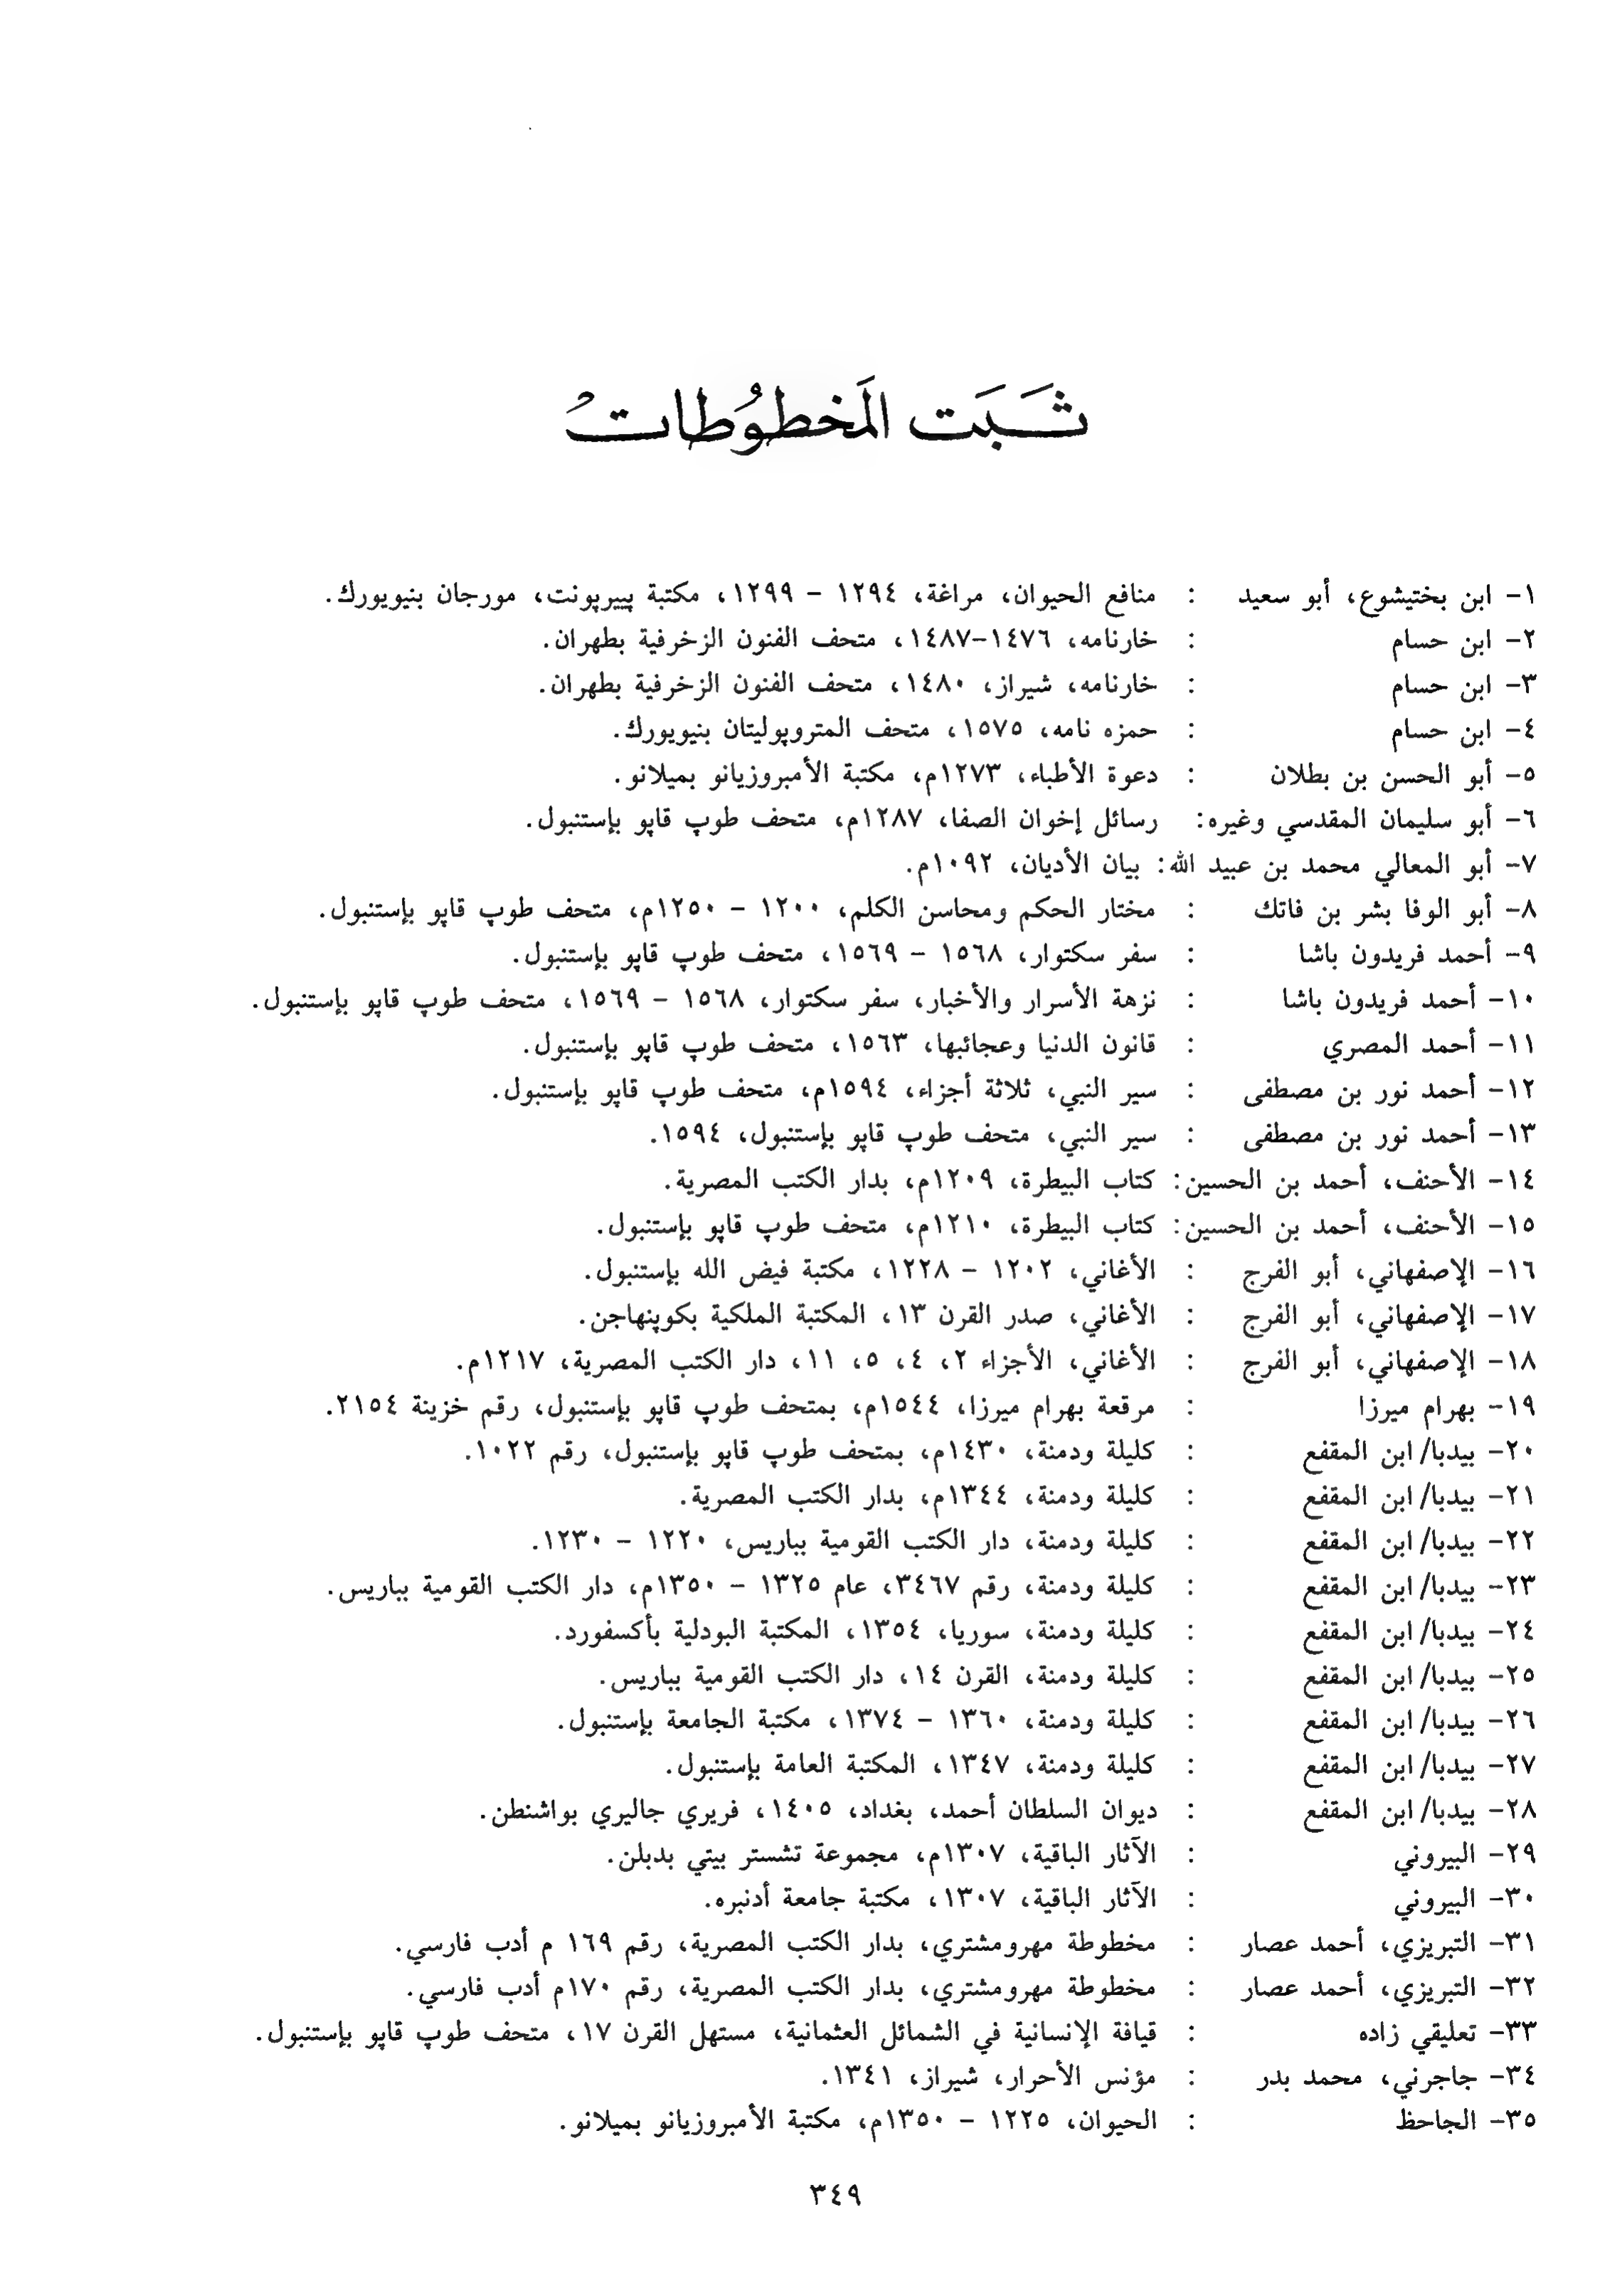 ثَبَت المَخطوُطات
١- ابن بختيشوع، أبو سعيد : منافع الحيوان، مراغة، ١٢٩٤ - ١٢٩٩، مكتبة پييرپونت، مورجان بنيويورك.
٢- ابن حسام : خارنامه، ١٤٧٦-١٤٨٧، متحف الفنون الزخرفية بطهران.
٣- ابن حسام : خارنامه، شيراز، ١٤٨٠، متحف الفنون الزخرفية بطهران.
٤- ابن حسام : حمزه نامه، ١٥٧٥، متحف المتروپوليتان بنيويورك.
٥- أبو الحسن بن بطلان : دعوة الأطباء، ١٢٧٣م، مكتبة الأمبروزيانو بميلانو.
٦- أبو سليمان المقدسي وغيره: رسائل إخوان الصفا، ١٢٨٧م، متحف طوپ قاپو بإستنبول.
٧- أبو المعالي محمد بن عبيد الله: بيان الأديان، ١٠٩٢م.
٨- أبو الوفا بشر بن فاتك : مختار الحكم ومحاسن الكلم، ١٢٠٠ - ١٢٥٠م، متحف طوپ قاپو بإستنبول.
٩- أحمد فريدون باشا : سفر سكتوار، ١٥٦٨ - ١٥٦٩، متحف طوپ قاپو بإستنبول.
١٠- أحمد فريدون باشا : نزهة الأسرار والأخبار، سفر سكتوار، ١٥٦٨ - ١٥٦٩، متحف طوپ قاپو بإستنبول.
١١- أحمد المصري : قانون الدنيا وعجائبها، ١٥٦٣، متحف طوپ قاپو بإستنبول.
١٢- أحمد نور بن مصطفى : سير النبي، ثلاثة أجزاء، ١٥٩٤م، متحف طوپ قاپو بإستنبول.
١٣- أحمد نور بن مصطفى : سير النبي، متحف طوپ قاپو بإستنبول، ١٥٩٤.
١٤- الأحنف، أحمد بن الحسين: كتاب البيطرة، ١٢٠٩م، بدار الكتب المصرية.
١٥- الأحنف، أحمد بن الحسين: كتاب البيطرة، ١٢١٠م، متحف طوپ قاپو بإستنبول.
١٦- الإصفهاني، أبو الفرج : الأغاني، ١٢٠٢ - ١٢٢٨، مكتبة فيض الله بإستنبول.
١٧- الإصفهاني، أبو الفرج : الأغاني، صدر القرن ١٣، المكتبة الملكية بكوپنهاجن.
١٨- الإصفهاني، أبو الفرج : الأغاني، الأجزاء ٢، ٤، ٥، ١١، دار الكتب المصرية، ١٢١٧م.
١٩- بهرام ميرزا : مرقعة بهرام ميرزا، ١٥٤٤م، بمتحف طوپ قاپو بإستنبول، رقم خزينة ٢١٥٤.
٢٠- بيدبا/ ابن المقفع : كليلة ودمنة، ١٤٣٠م، بمتحف طوپ قاپو بإستنبول، رقم ١٠٢٢.
٢١- بيدبا/ ابن المقفع : كليلة ودمنة، ١٣٤٤م، بدار الكتب المصرية.
٢٢- بيدبا/ ابن المقفع : كليلة ودمنة، دار الكتب القومية بباريس، ١٢٢٠ - ١٢٣٠.
٢٣- بيدبا/ ابن المقفع : كليلة ودمنة، رقم ٣٤٦٧، عام ١٣٢٥ - ١٣٥٠م، دار الكتب القومية بباريس.
٢٤- بيدبا/ ابن المقفع : كليلة ودمنة، سوريا، ١٣٥٤، المكتبة البودلية بأكسفورد.
٢٥- بيدبا/ ابن المقفع : كليلة ودمنة، القرن ١٤، دار الكتب القومية بباريس.
٢٦- بيدبا/ ابن المقفع : كليلة ودمنة، ١٣٦٠ - ١٣٧٤، مكتبة الجامعة بإستنبول.
٢٧- بيدبا/ ابن المقفع : كليلة ودمنة، ١٣٤٧، المكتبة العامة بإستنبول.
٢٨- بيدبا/ ابن المقفع : ديوان السلطان أحمد، بغداد، ١٤٠٥، فريري جاليري بواشنطن.
٢٩- البيروني : الآثار الباقية، ١٣٠٧م، مجموعة تشستر بيتي بدبلن.
٣٠- البيروني : الآثار الباقية، ١٣٠٧، مكتبة جامعة أدنبره.
٣١- التبريزي، أحمد عصار : مخطوطة مهرومشتري، بدار الكتب المصرية، رقم ١٦٩ م أدب فارسي.
٣٢- التبريزي، أحمد عصار : مخطوطة مهرومشتري، بدار الكتب المصرية، رقم ١٧٠م أدب فارسي.
٣٣- تعليقي زاده : قيافة الإنسانية في الشمائل العثمانية، مستهل القرن ١٧، متحف طوپ قاپو بإستنبول.
٣٤- جاجرني، محمد بدر : مؤنس الأحرار، شيراز، ١٣٤١.
٣٥- الجاحظ : الحيوان، ١٢٢٥ - ١٣٥٠م، مكتبة الأمبروزيانو بميلانو.
٣٤٩